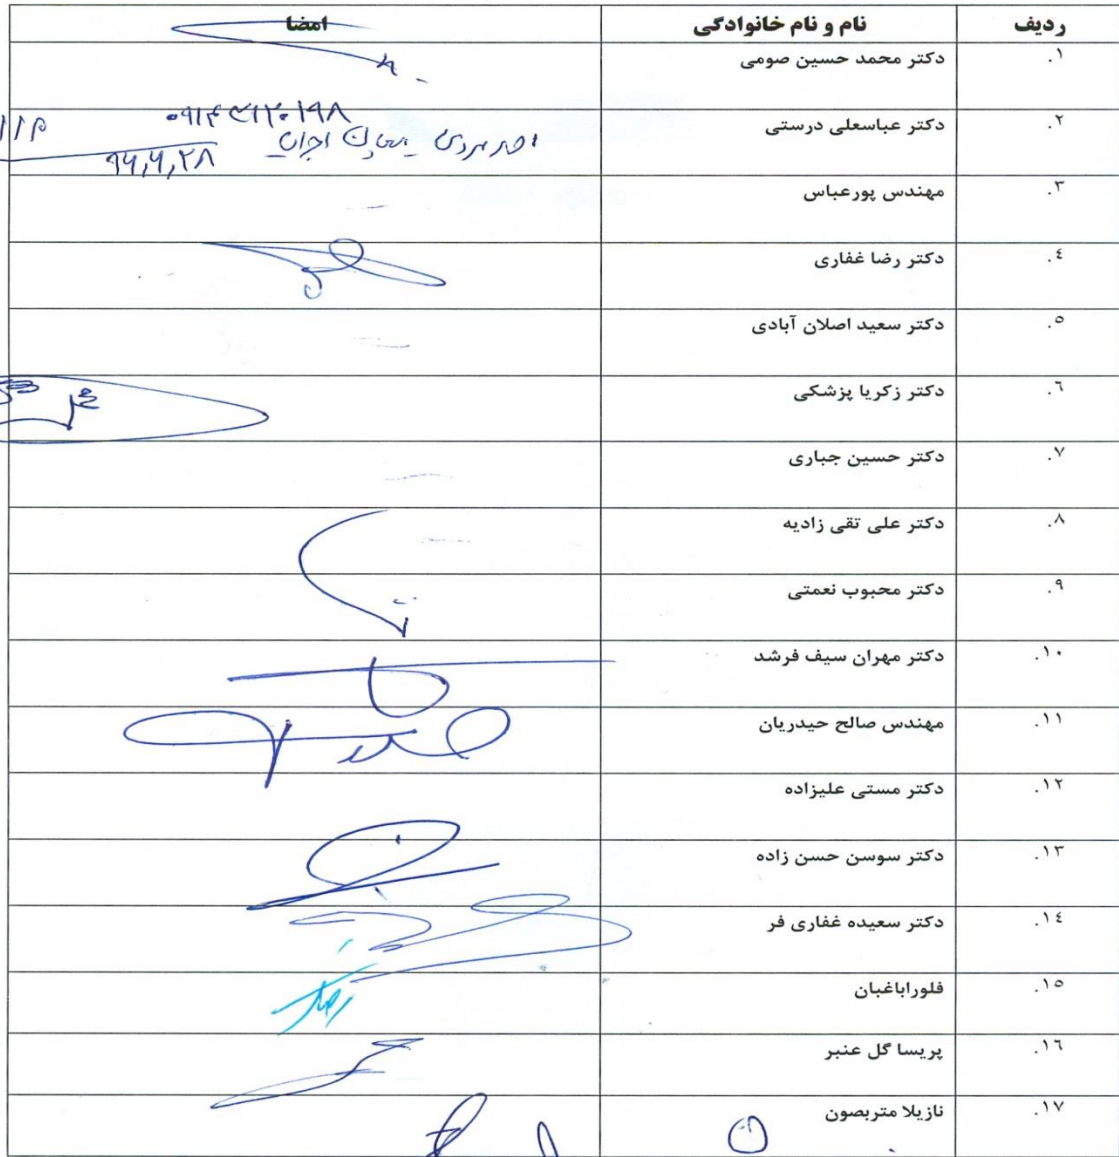 ردیف نام و نام خانوادگی امضا
.۱ دکتر محمد حسین صومی
.۲ دکتر عباسعلی درستی
۹۶,۶,۲۸
.۳ مهندس پورعباس
.٤ دکتر رضا غفاری
.٥ دکتر سعید اصلان آبادی
.٦ دکتر زکریا پزشکی
.۷ دکتر حسین جباری
.۸ دکتر علی تقی زادیه
.۹ دکتر محبوب نعمتی
.۱۰ دکتر مهران سیف فرشد
.۱۱ مهندس صالح حیدریان
.۱۲ دکتر مستی علیزاده
.۱۳ دکتر سوسن حسن زاده
.۱٤ دکتر سعیده غفاری فر
.۱٥ فلوراباغبان
.۱٦ پریسا گل عنبر
.۱۷ نازیلا متربصون